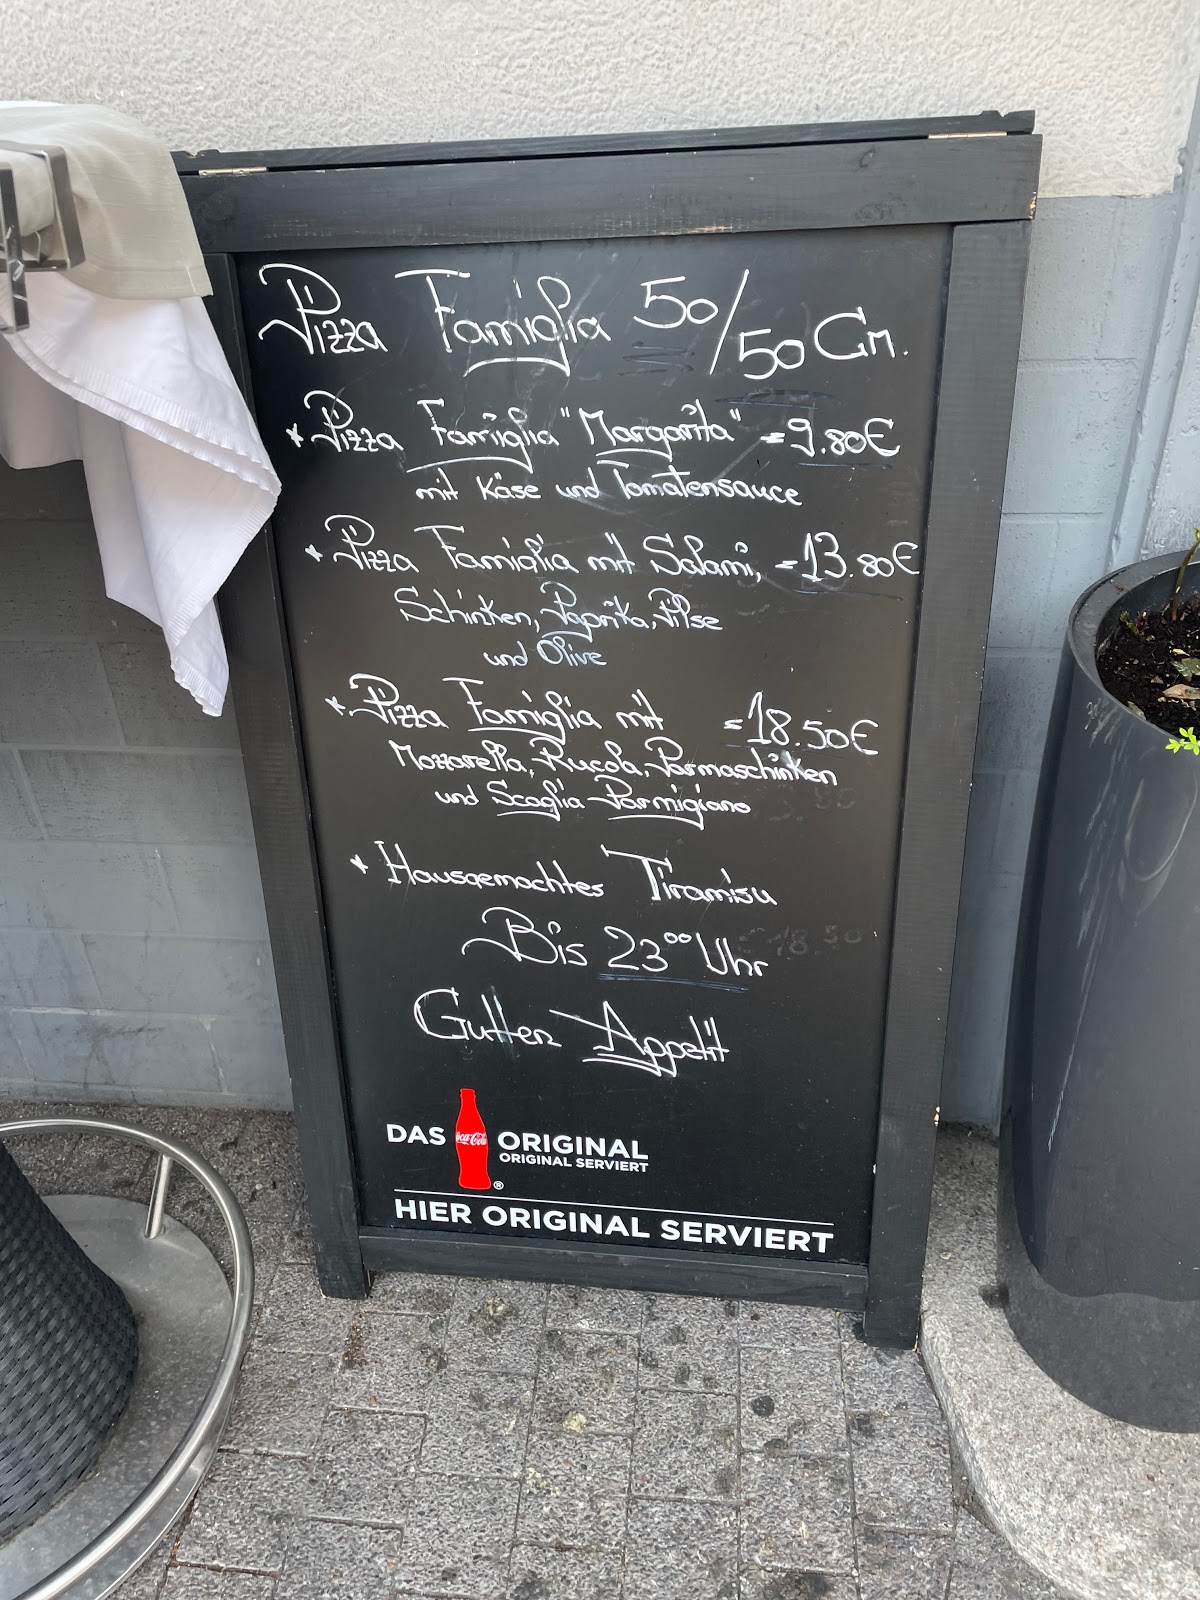 Pizza Famiglia 50/50 Cm.
* Pizza Famiglia "Margarita" = 9.80€
mit Käse und Tomatensauce
* Pizza Famiglia mit Salami, = 13.80€
Schinken, Paprika, Pilse
und Olive
* Pizza Famiglia mit = 18.50€
Mozzarella, Rucola, Parmaschinken
und Scaglia Parmigiano
* Hausgemachtes Tiramisu
Bis 23⁰⁰ Uhr
Gutten Appetit
DAS Coca-Cola ORIGINAL
ORIGINAL SERVIERT
®
HIER ORIGINAL SERVIERT